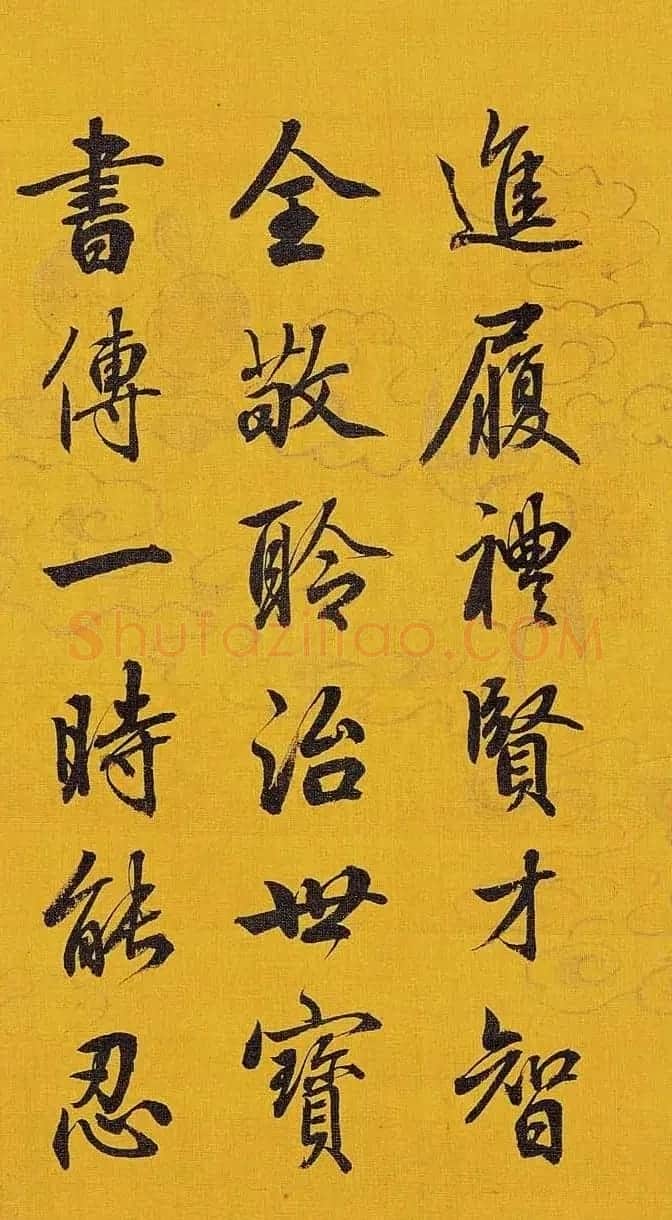 進履禮賢才智
全敬聆治世寶
書傳一時能忍
Shufaziliao.COM